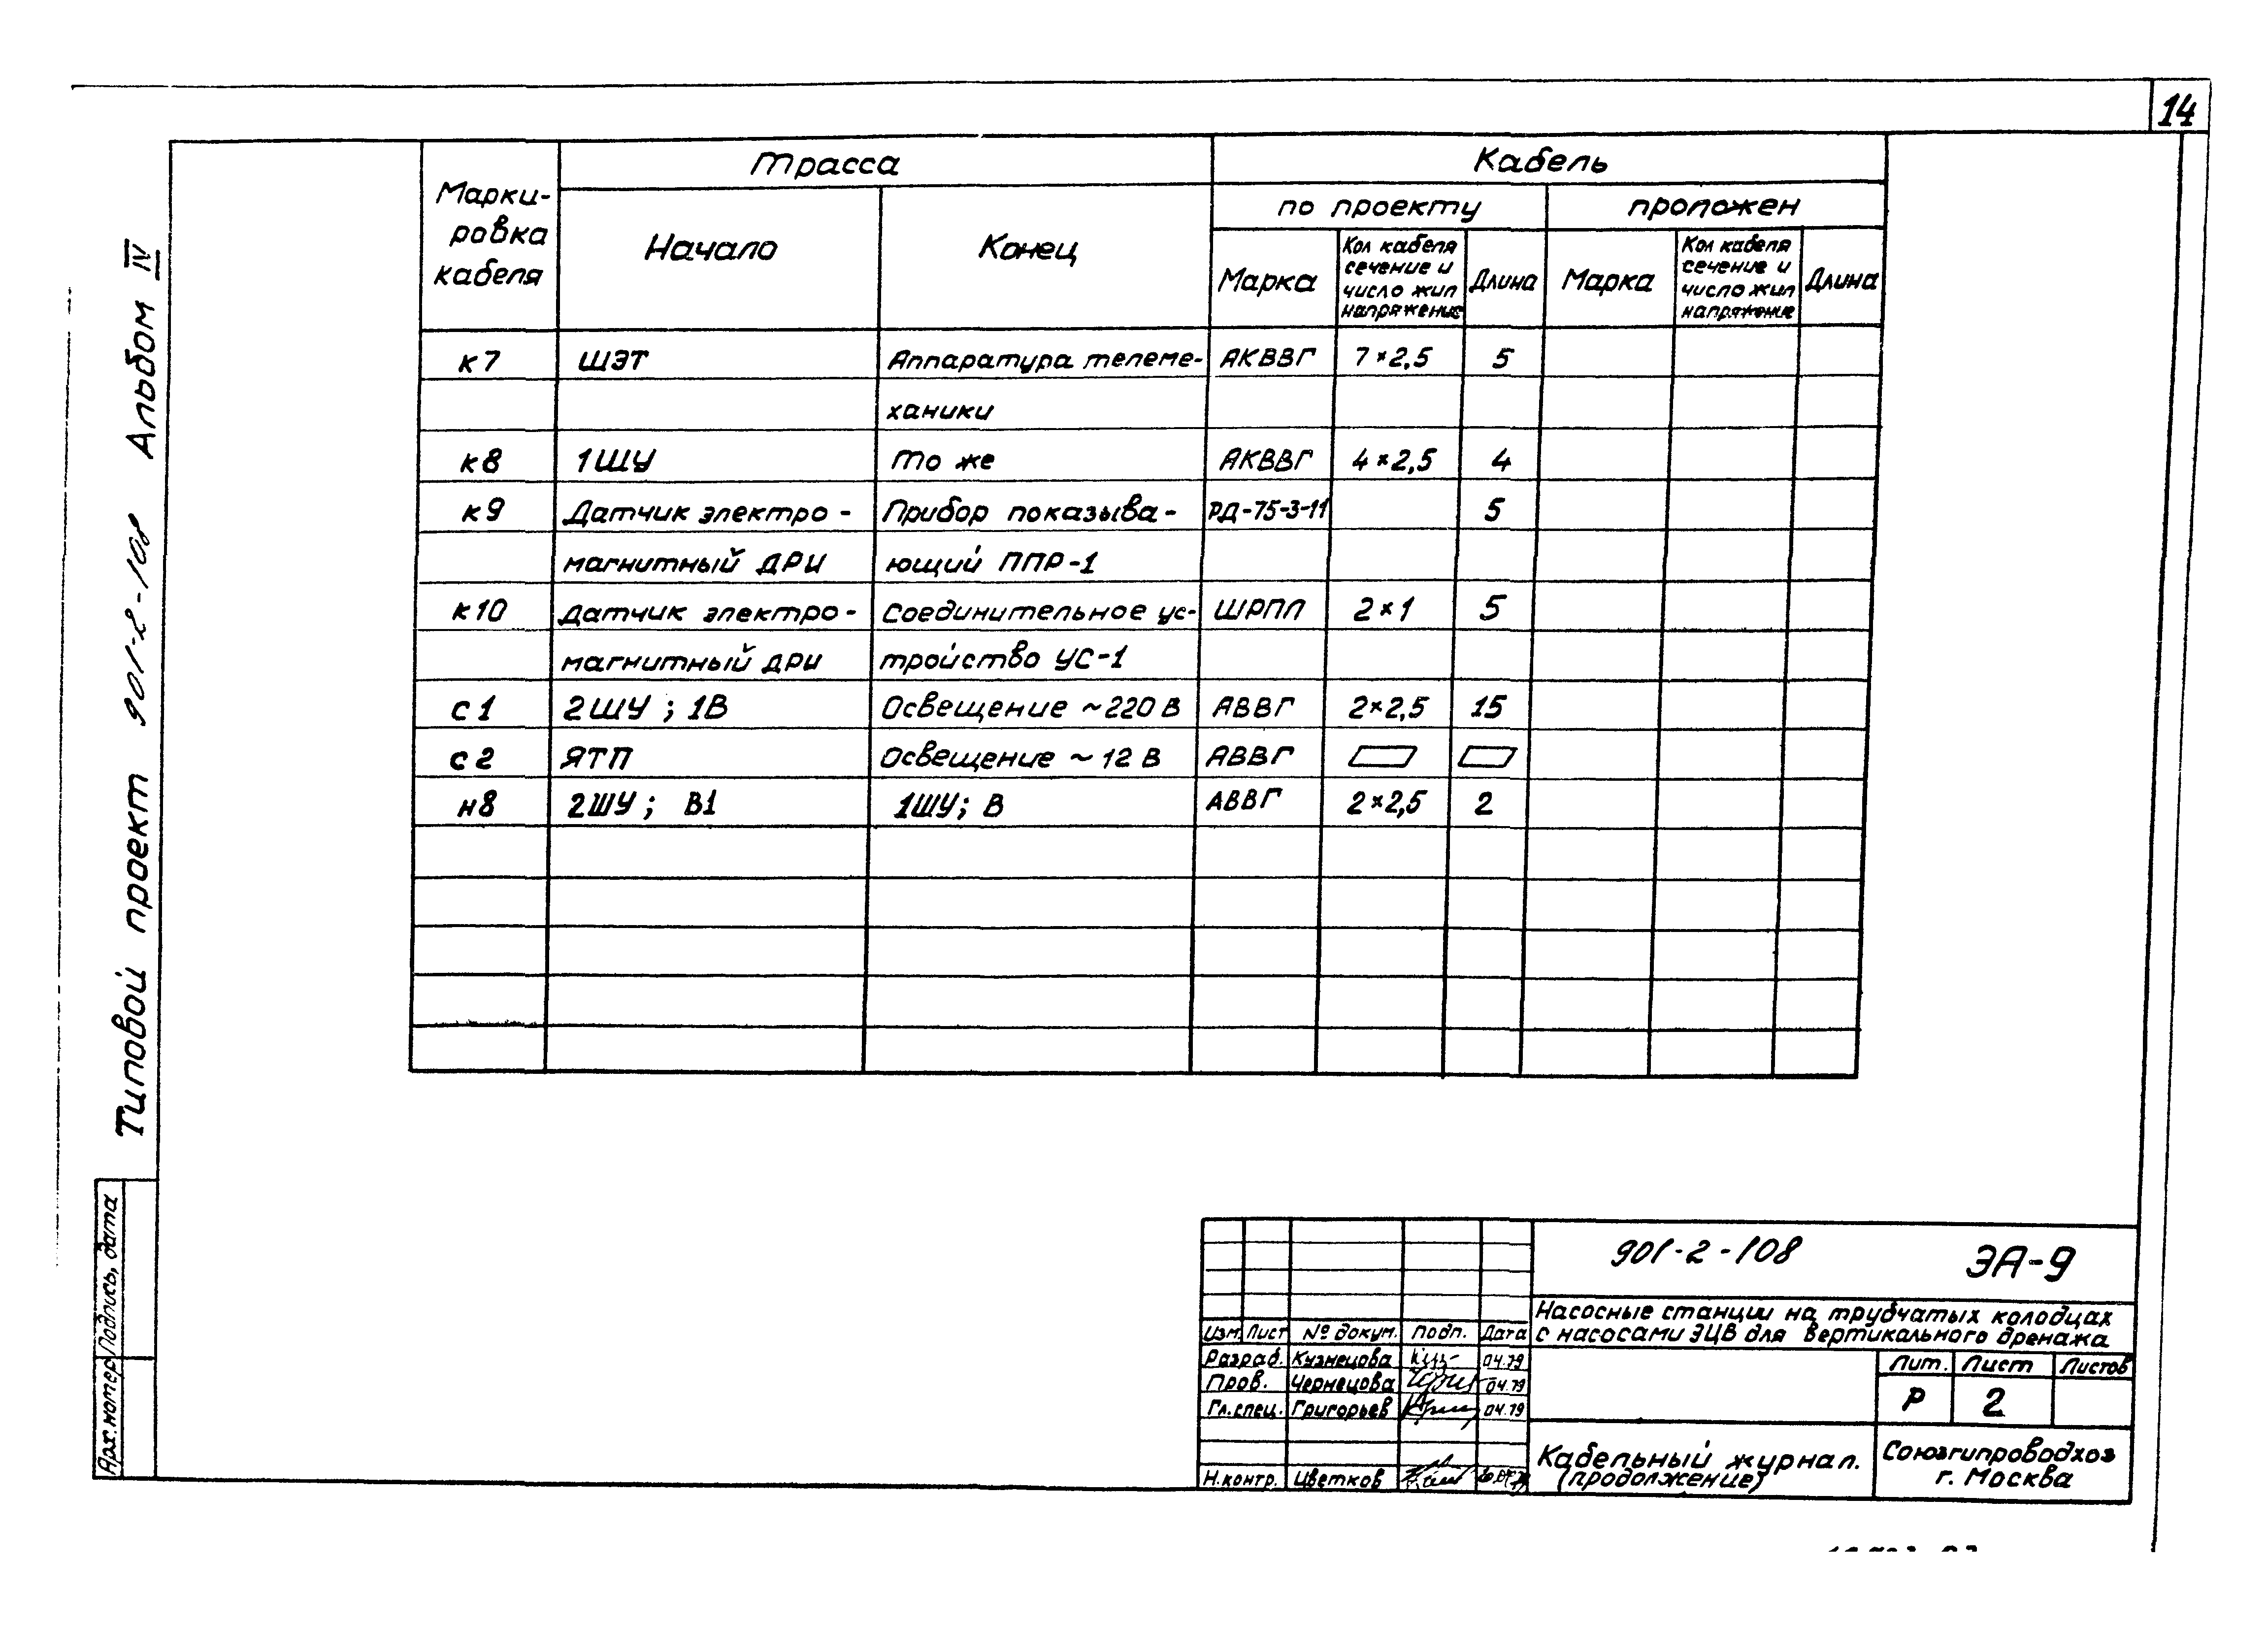 14
Типовой проект 901-2-108 Альбом IV
Марки-
ровка
кабеля
Трасса
Кабель
Начало
Конец
по проекту
проложен
Марка
Кол кабеля
сечение и
число жил
напряжение
Длина
Марка
Кол кабеля
сечение и
число жил
напряжение
Длина
к7 ШЭТ Аппаратура телеме- АКВВГ 7×2,5 5
ханики
к8 1ШУ То же АКВВГ 4×2,5 4
к9 Датчик электро- Прибор показыва- РД-75-3-11 5
магнитный ДРИ ющий ППР-1
к10 Датчик электро- Соединительное ус- ШРПЛ 2×1 5
магнитный ДРИ тройство УС-1
с1 2ШУ ; 1В Освещение ~220 В АВВГ 2×2,5 15
с2 ЯТП Освещение ~ 12 В АВВГ
н8 2ШУ ; В1 1ШУ; В АВВГ 2×2,5 2
Арх. номер Подпись, дата
901-2-108 ЭА-9
Насосные станции на трубчатых колодцах
с насосами ЭЦВ для вертикального дренажа
Изм. Лист № докум. Подп. Дата
Разраб. Кузнецова 04.79
Пров. Чернецова 04.79
Гл.спец. Григорьев 04.79
Н.контр. Цветков
Лит. Лист Листов
Р 2
Кабельный журнал.
(продолжение)
Союзгипроводхоз
г. Москва